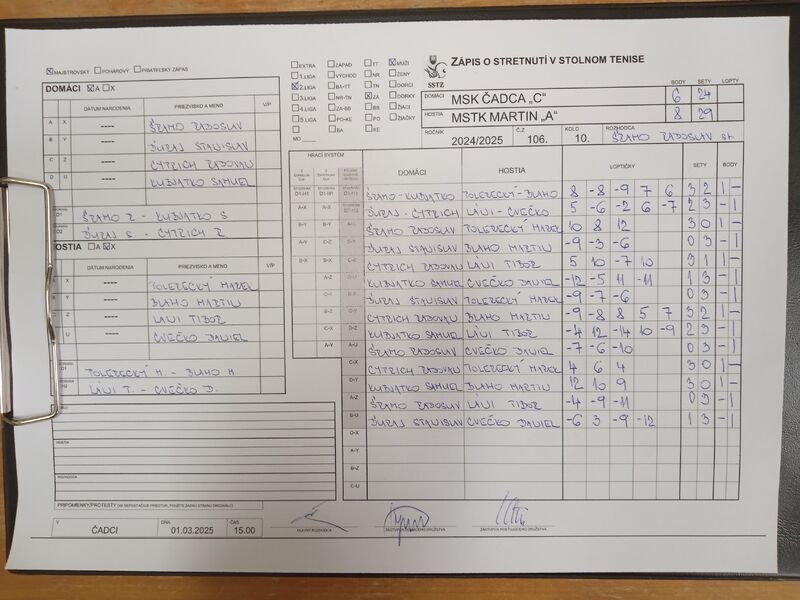 MAJSTROVSKÝ POHÁROVÝ PRIATEĽSKÝ ZÁPAS
DOMÁCI A X
DÁTUM NARODENIA PRIEZVISKO A MENO V/P
A X ---- ŠRAMO RADOSLAV
B Y ---- ĎURAJ STANISLAV
C Z ---- CYPRICH RADOVAN
D U ---- KUBJATKO SAMUEL
D1 ŠRAMO R - KUBJATKO S
D2 ĎURAJ S - CYPRICH R
HOSTIA A X
DÁTUM NARODENIA PRIEZVISKO A MENO V/P
X ---- TOLERECKÝ MAREK
Y ---- BLAHO MARTIN
Z ---- LÁNI TIBOR
U ---- CVEČKO DANIEL
TOLERECKÝ M. - BLAHO M.
LÁNI T. - CVEČKO D.
HOSTIA
ROZHODCA
PRIPOMIENKY/PROTESTY
V ČADCI DŇA 01.03.2025 ČAS 15.00
EXTRA ZÁPAD TT MUŽI
1.LIGA VÝCHOD NR ŽENY
2.LIGA BA-TT TN DORCI
3.LIGA NR-TN ZA DORKY
4.LIGA ZA-BB BB ŽIACI
5.LIGA PO-KE PO ŽIAČKY
BA KE
MO
SSTZ
ZÁPIS O STRETNUTÍ V STOLNOM TENISE
BODY SETY LOPTY
DOMÁCI MSK ČADCA „C“ 6 24
HOSTIA MSTK MARTIN „A“ 8 29
ROČNÍK 2024/2025 Č.Z 106. KOLO 10. ROZHODCA ŠRAMO RADOSLAV st
HRACÍ SYSTÉM DOMÁCI HOSTIA LOPTIČKY SETY BODY
ŠRAMO - KUBJATKO TOLERECKÝ - BLAHO 8 -8 -9 7 6 3 2 1 -
A-X A-X ĎURAJ - CYPRICH LÁNI - CVEČKO 5 -6 -2 6 -7 2 3 - 1
B-Y B-Y ŠRAMO RADOSLAV TOLERECKÝ MAREK 10 8 12 3 0 1 -
A-Y C-Z ĎURAJ STANISLAV BLAHO MARTIN -9 -3 -6 0 3 - 1
B-X CYPRICH RADOVAN LÁNI TIBOR 5 10 -7 10 3 1 1 -
A-Z KUBJATKO SAMUEL CVEČKO DANIEL -12 -5 11 -11 1 3 - 1
ĎURAJ STANISLAV TOLERECKÝ MAREK -9 -7 -6 0 3 - 1
B-Z CYPRICH RADOVAN BLAHO MARTIN -9 -8 8 5 7 3 2 - 1
C-X KUBJATKO SAMUEL LÁNI TIBOR -4 12 -14 10 -9 2 3 - 1
A-Y A-U ŠRAMO RADOSLAV CVEČKO DANIEL -7 -6 -10 0 3 - 1
C-X CYPRICH RADOVAN TOLERECKÝ MAREK 4 6 4 3 0 1 -
D-Y KUBJATKO SAMUEL BLAHO MARTIN 12 10 9 3 0 1 -
A-Z ŠRAMO RADOSLAV LÁNI TIBOR -4 -9 -11 0 3 - 1
B-U ĎURAJ STANISLAV CVEČKO DANIEL -6 3 -9 -12 1 3 - 1
D-X
A-Y
B-Z
C-U
HLAVNÝ ROZHODCA ZÁSTUPCA DOMÁCEHO DRUŽSTVA ZÁSTUPCA HOSŤUJÚCEHO DRUŽSTVA